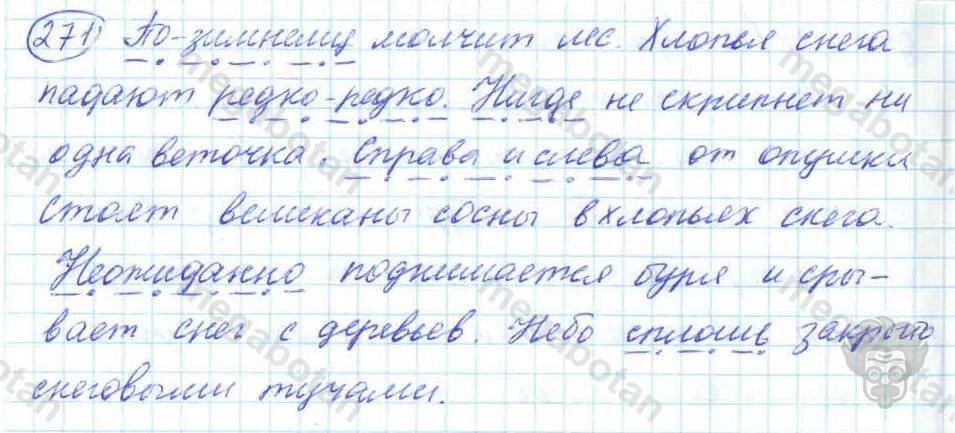 271 По-зимнему молчит лес. Хлопья снега
падают редко-редко. Нигде не скрипнет ни
одна веточка. Справа и слева от опушки
стоят великаны сосны в хлопьях снега.
Неожиданно поднимается буря и сры-
вает снег с деревьев. Небо сплошь закрыто
снеговыми тучами.
megabotan